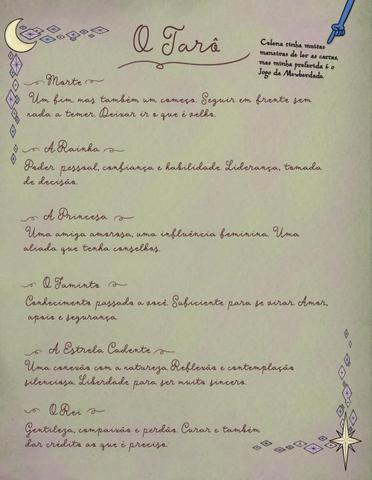 O Tarô
Celena tinha muitas
maneiras de ler as cartas,
mas minha preferida é o
Jogo da Mewberdade.
Morte
Um fim mas também um começo. Seguir em frente sem
nada a temer. Deixar ir o que é velho.
A Rainha
Poder pessoal, confiança e habilidade. Liderança, tomada
de decisão.
A Princesa
Uma amiga amorosa, uma influência feminina. Uma
aliada que tenha conselhos.
O Faminto
Conhecimento passado a você. Suficiente para se virar. Amor,
apoio e segurança.
A Estrela Cadente
Uma conexão com a natureza. Reflexão e contemplação
silenciosa. Liberdade para ser muito sincero.
O Rei
Gentileza, compaixão e perdão. Curar e também
dar crédito ao que é preciso.